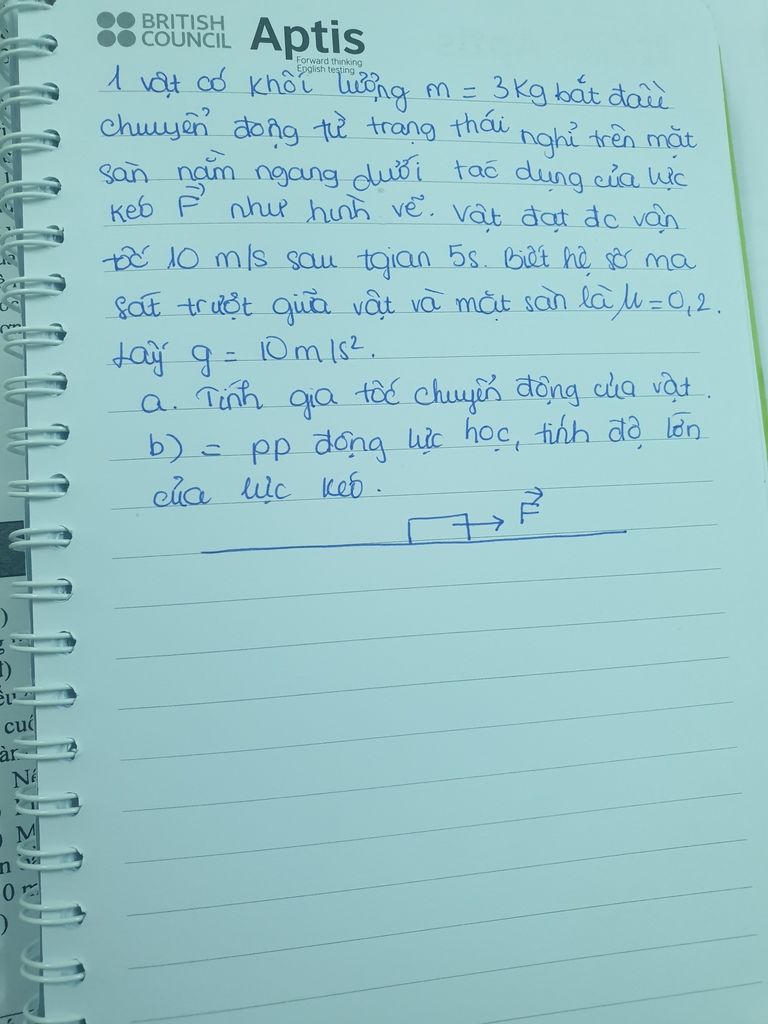 BRITISH
COUNCIL
Aptis
Forward thinking
English testing
1 vật có khối lượng m = 3Kg bắt đầu
chuyển động từ trạng thái nghỉ trên mặt
sàn nằm ngang dưới tác dụng của lực
kéo F⃗ như hình vẽ. Vật đạt đc vận
tốc 10 m/s sau tgian 5s. Biết hệ số ma
sát trượt giữa vật và mặt sàn là μ = 0,2.
Lấy g = 10 m/s².
a. Tính gia tốc chuyển động của vật.
b) = pp động lực học, tính độ lớn
của lực kéo.
F⃗
cuố
Né
M
0 m